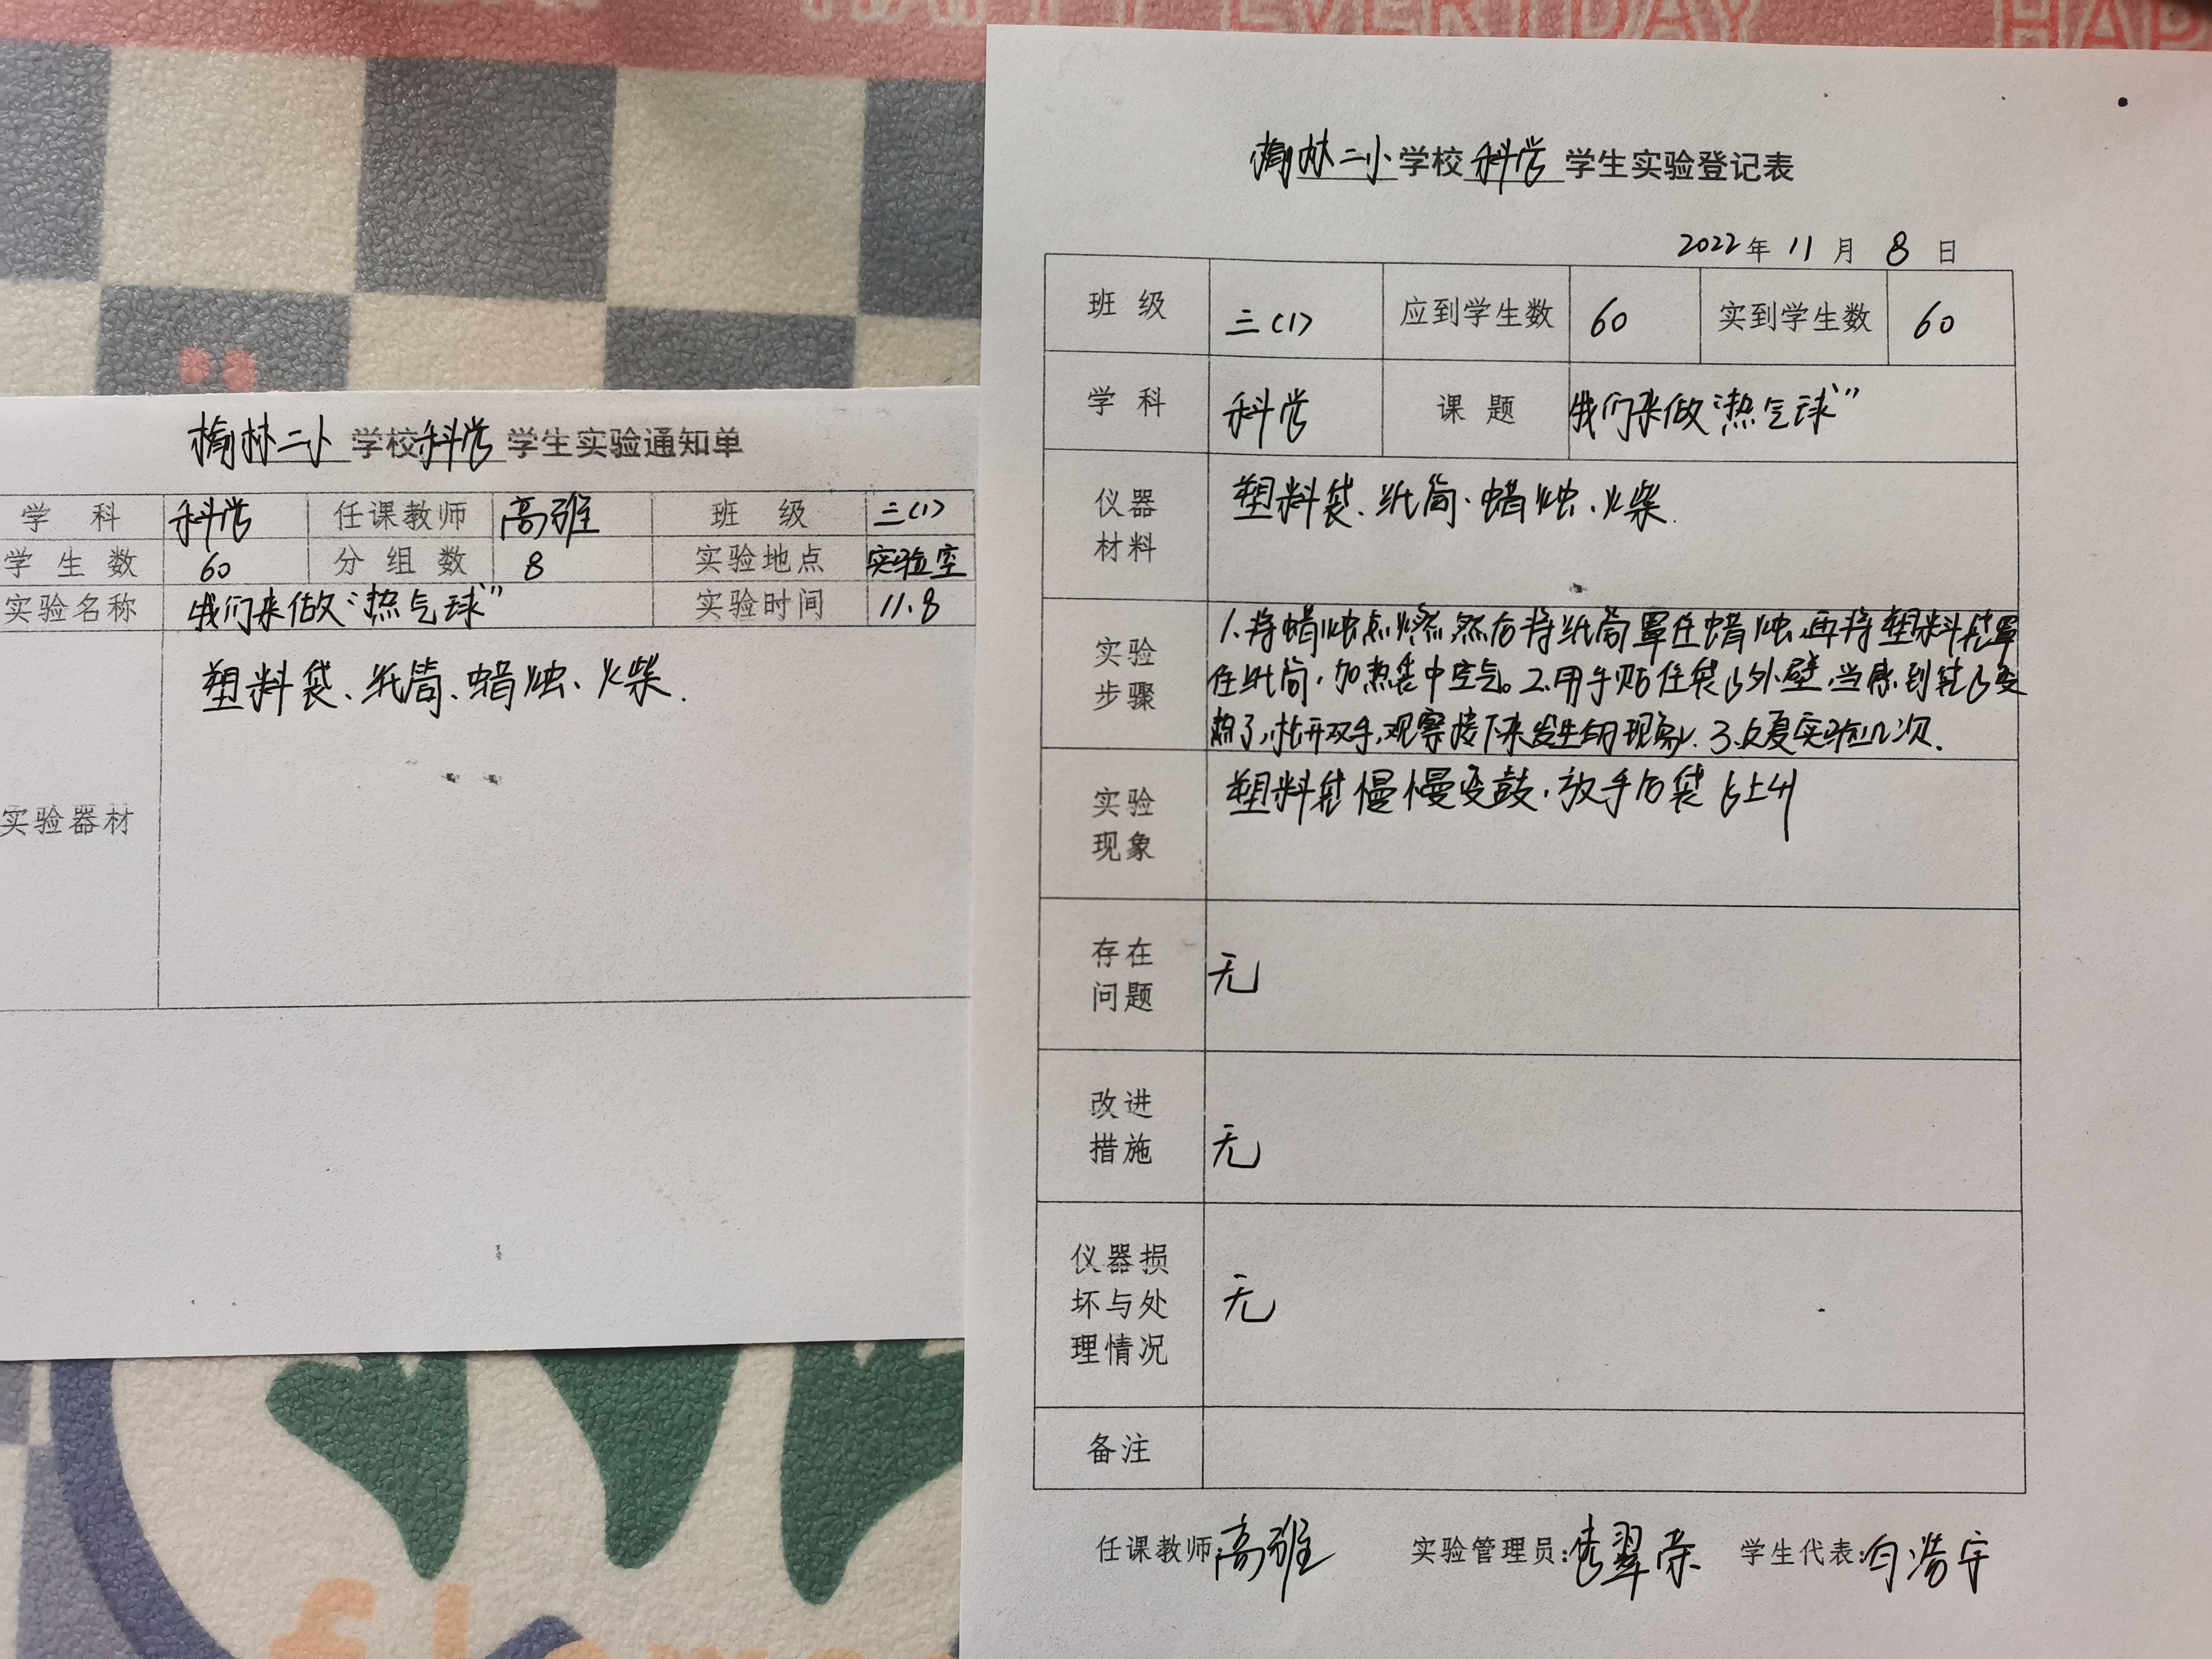 HAPPY EVERYDAY
HAP
榆林二小学校科学学生实验通知单
学 科 科学 任课教师 高雅 班 级 三(1)
学 生 数 60 分 组 数 8 实验地点 实验室
实验名称 我们来做“热气球” 实验时间 11.8
实验器材 塑料袋、纸筒、蜡烛、火柴.
榆林二小学校科学学生实验登记表
2022年 11 月 8 日
班 级 三(1) 应到学生数 60 实到学生数 60
学 科 科学 课 题 我们来做“热气球”
仪器
材料
塑料袋、纸筒、蜡烛、火柴.
实验
步骤
1.将蜡烛点燃然后将纸筒罩住蜡烛,再将塑料袋罩
住纸筒,加热袋中空气。2.用手贴住袋的外壁,当感到袋的变
热了,松开双手,观察接下来发生的现象. 3.反复实验几次.
实验
现象
塑料袋慢慢变鼓,放手后袋的上升
存在
问题
无
改进
措施
无
仪器损
坏与处
理情况
无
备注
任课教师:高雅 实验管理员: 翠荣 学生代表: 浩宇